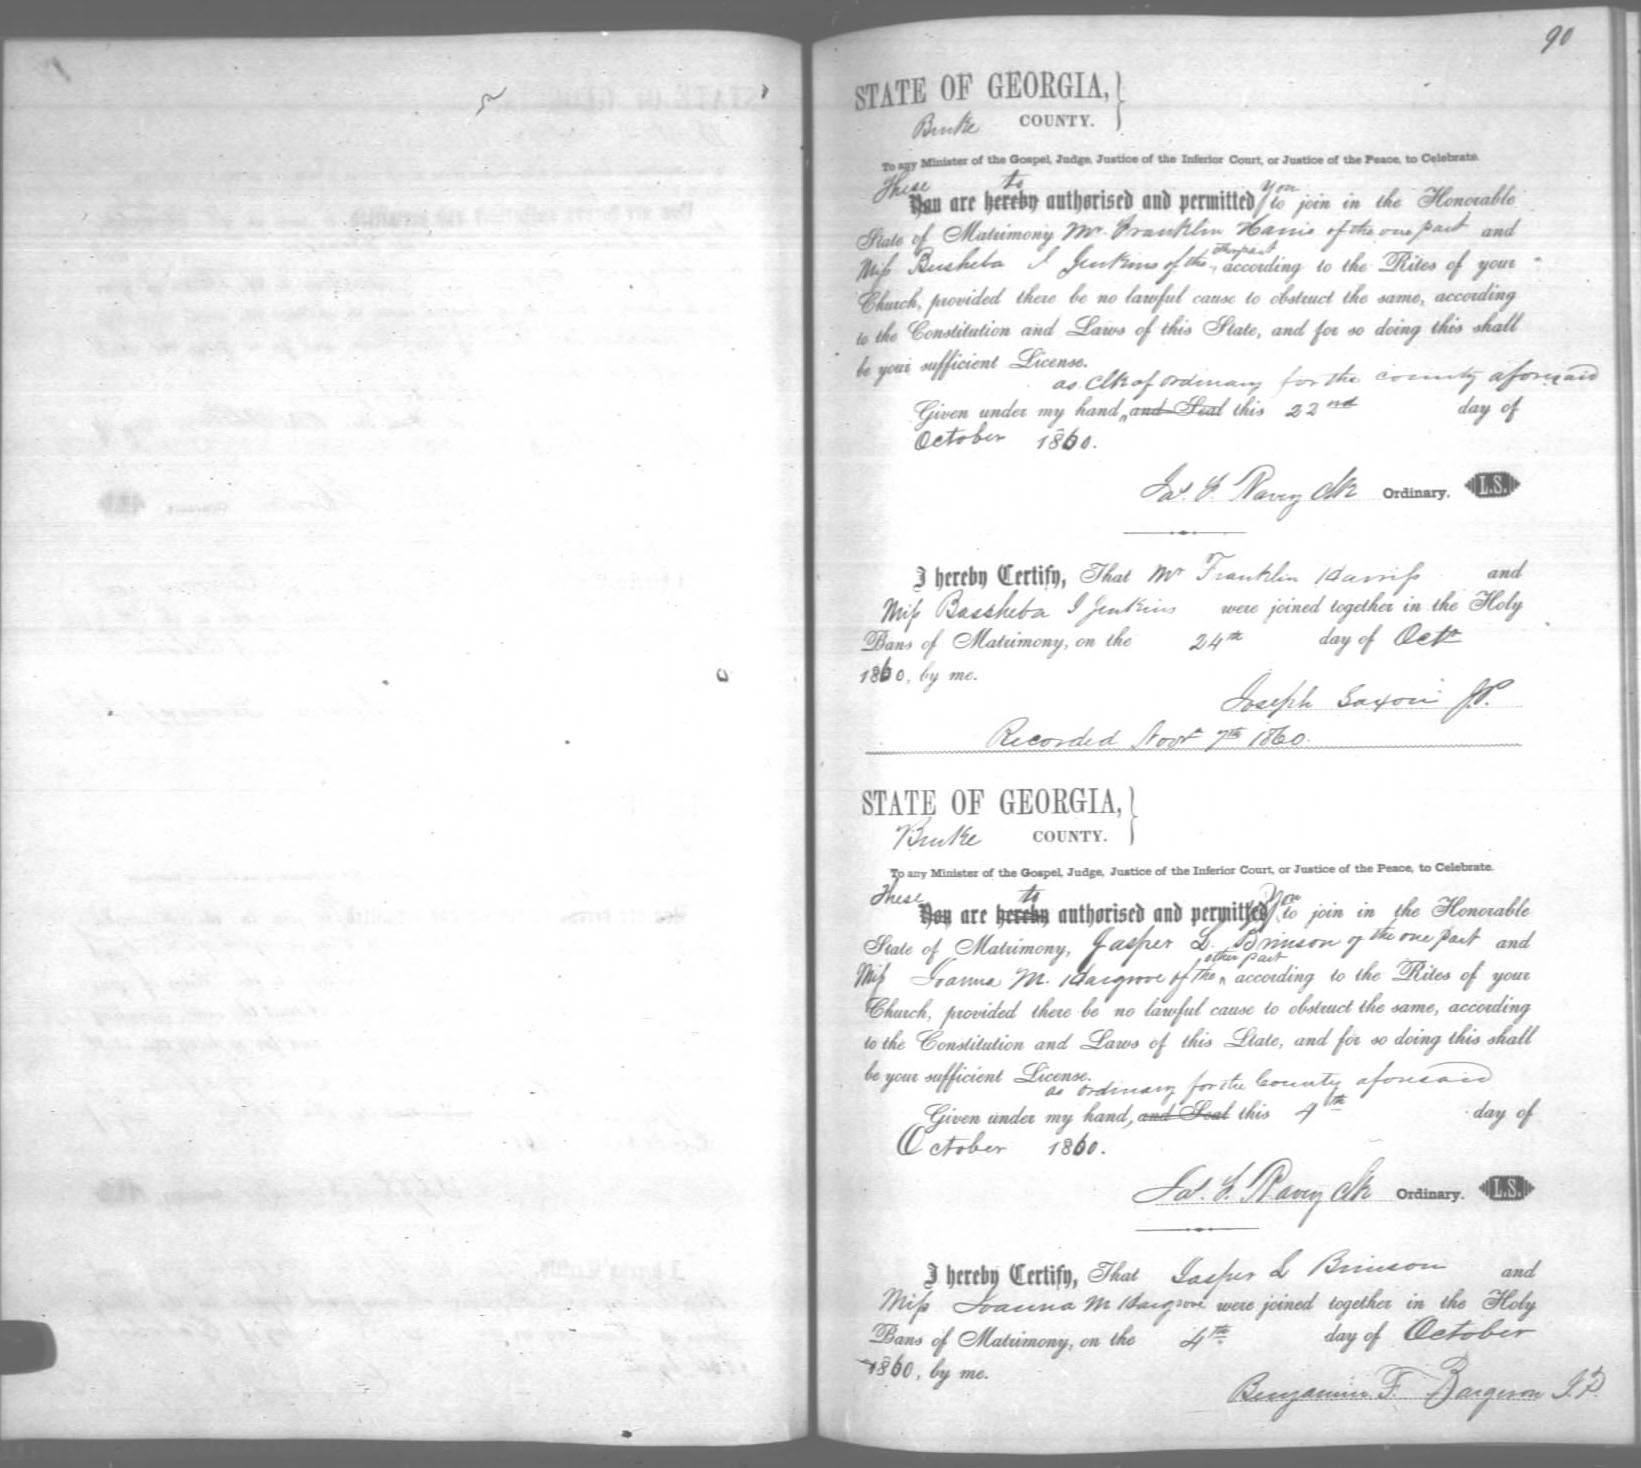 90
STATE OF GEORGIA,
Burke COUNTY.
To any Minister of the Gospel, Judge, Justice of the Inferior Court, or Justice of the Peace, to Celebrate.
These to You
You are hereby authorised and permitted to join in the Honorable
State of Matrimony Mr. Franklin Harris of the one part and
Miss Busheba J Jenkins of the other part according to the Rites of your
Church, provided there be no lawful cause to obstruct the same, according
to the Constitution and Laws of this State, and for so doing this shall
be your sufficient License.
as Clk of ordinary for the county aforesaid
Given under my hand, and Seal this 22nd day of
October 1860.
Clk Ordinary. L.S.
I hereby Certify, That Mr Franklin Harriss and
Miss Bassheba J Jenkins were joined together in the Holy
Bans of Matrimony, on the 24th day of Octr
1860, by me.
Joseph Saxon J.P.
Recorded Novr 7th 1860.
STATE OF GEORGIA,
Burke COUNTY.
To any Minister of the Gospel, Judge, Justice of the Inferior Court, or Justice of the Peace, to Celebrate.
These to You
You are hereby authorised and permitted to join in the Honorable
State of Matrimony, Jasper L. Brinson of the one part and
Miss Joanna M. Hargrove of the other part according to the Rites of your
Church, provided there be no lawful cause to obstruct the same, according
to the Constitution and Laws of this State, and for so doing this shall
be your sufficient License.
as ordinary for the County aforesaid
Given under my hand, and Seal this 4th day of
October 1860.
Clk Ordinary. L.S.
I hereby Certify, That Jasper L Brinson and
Miss Joanna M Hargrove were joined together in the Holy
Bans of Matrimony, on the 4th day of October
1860, by me.
Benjamin F. Bargeron J.P.